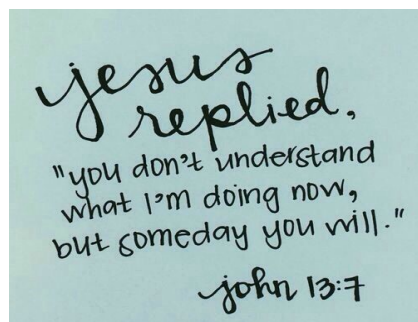 jesus
replied,
"you don't understand
what I'm doing now,
but someday you will."
john 13:7